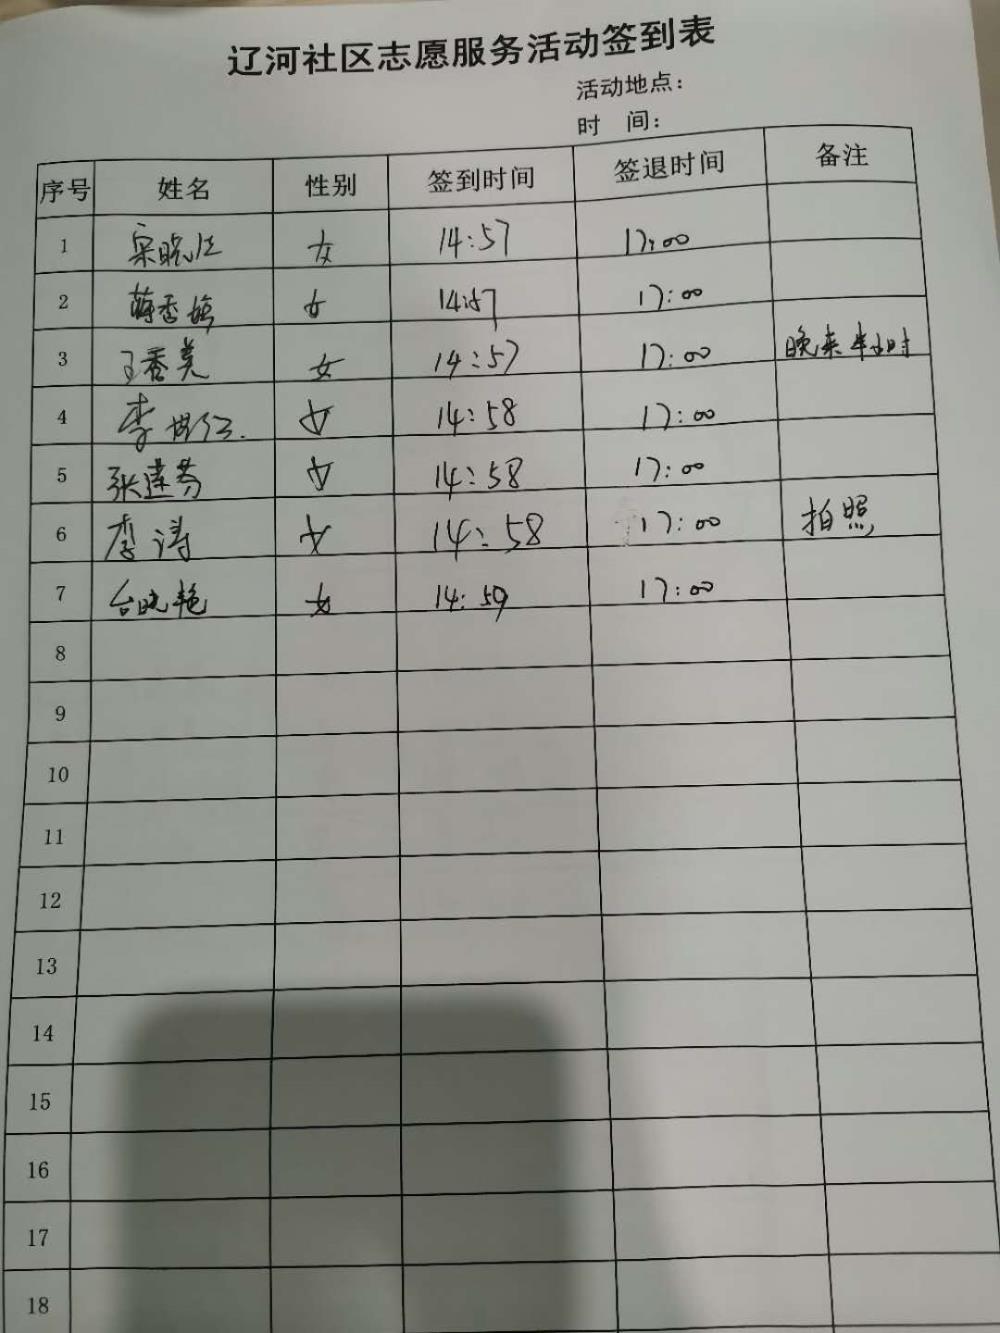 辽河社区志愿服务活动签到表
活动地点：
时 间：
序号 姓名 性别 签到时间 签退时间 备注
1 宋晓红 女 14:57 17:00
2 女 14:57 17:00
3 王香美 女 14:57 17:00 晚来半小时
4 李 女 14:58 17:00
5 张莲芬 女 14:58 17:00
6 李涛 女 14:58 17:00 拍照
7 台晓艳 女 14:59 17:00
8
9
10
11
12
13
14
15
16
17
18